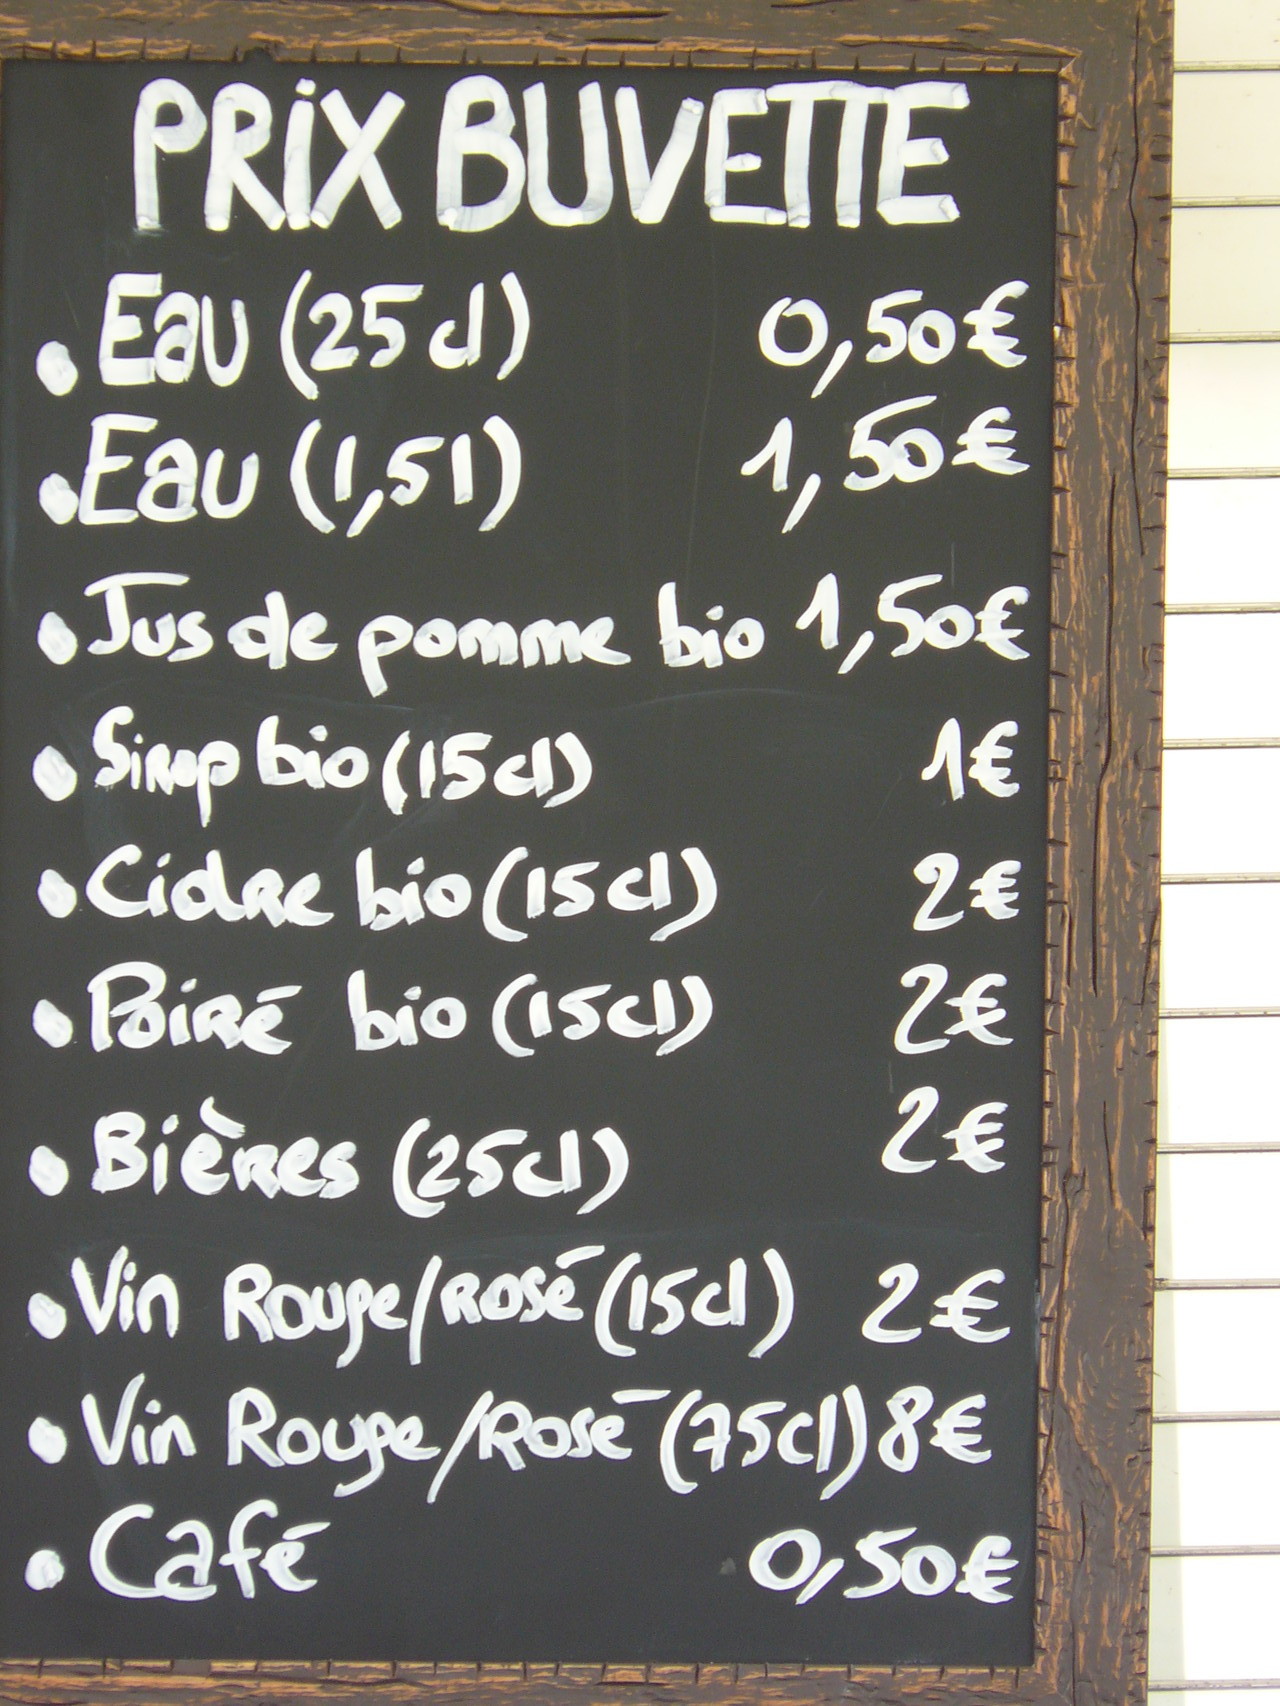 PRiX BUVETTE
• Eau (25cl) 0,50€
• Eau (1,5l) 1,50€
• Jus de pomme bio 1,50€
• Sirop bio (15cl) 1€
• Cidre bio (15cl) 2€
• Poiré bio (15cl) 2€
• Bières (25cl) 2€
• Vin Rouge/Rosé (15cl) 2€
• Vin Rouge/Rosé (75cl) 8€
• Café 0,50€